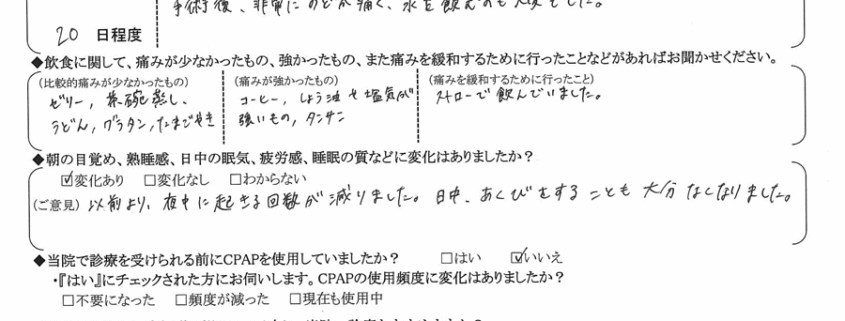 手術後、非常にのどが痛く、水を飲むのも大変でした。
20 日程度
◆飲食に関して、痛みが少なかったもの、強かったもの、また痛みを緩和するために行ったことなどがあればお聞かせください。
(比較的痛みが少なかったもの) (痛みが強かったもの) (痛みを緩和するために行ったこと)
ゼリー, 茶碗蒸し、 コーヒー, しょう油や塩気が ストローで飲んでいました。
うどん, グラタン, たまごやき 強いもの, タンサン
◆朝の目覚め、熟睡感、日中の眠気、疲労感、睡眠の質などに変化はありましたか?
☑変化あり □変化なし □わからない
(ご意見) 以前より、夜中に起きる回数が減りました。日中、あくびをすることも大分なくなりました。
◆当院で診療を受けられる前にCPAPを使用していましたか? □はい ☑いいえ
・『はい』にチェックされた方にお伺いします。CPAPの使用頻度に変化はありましたか?
□不要になった □頻度が減った □現在も使用中